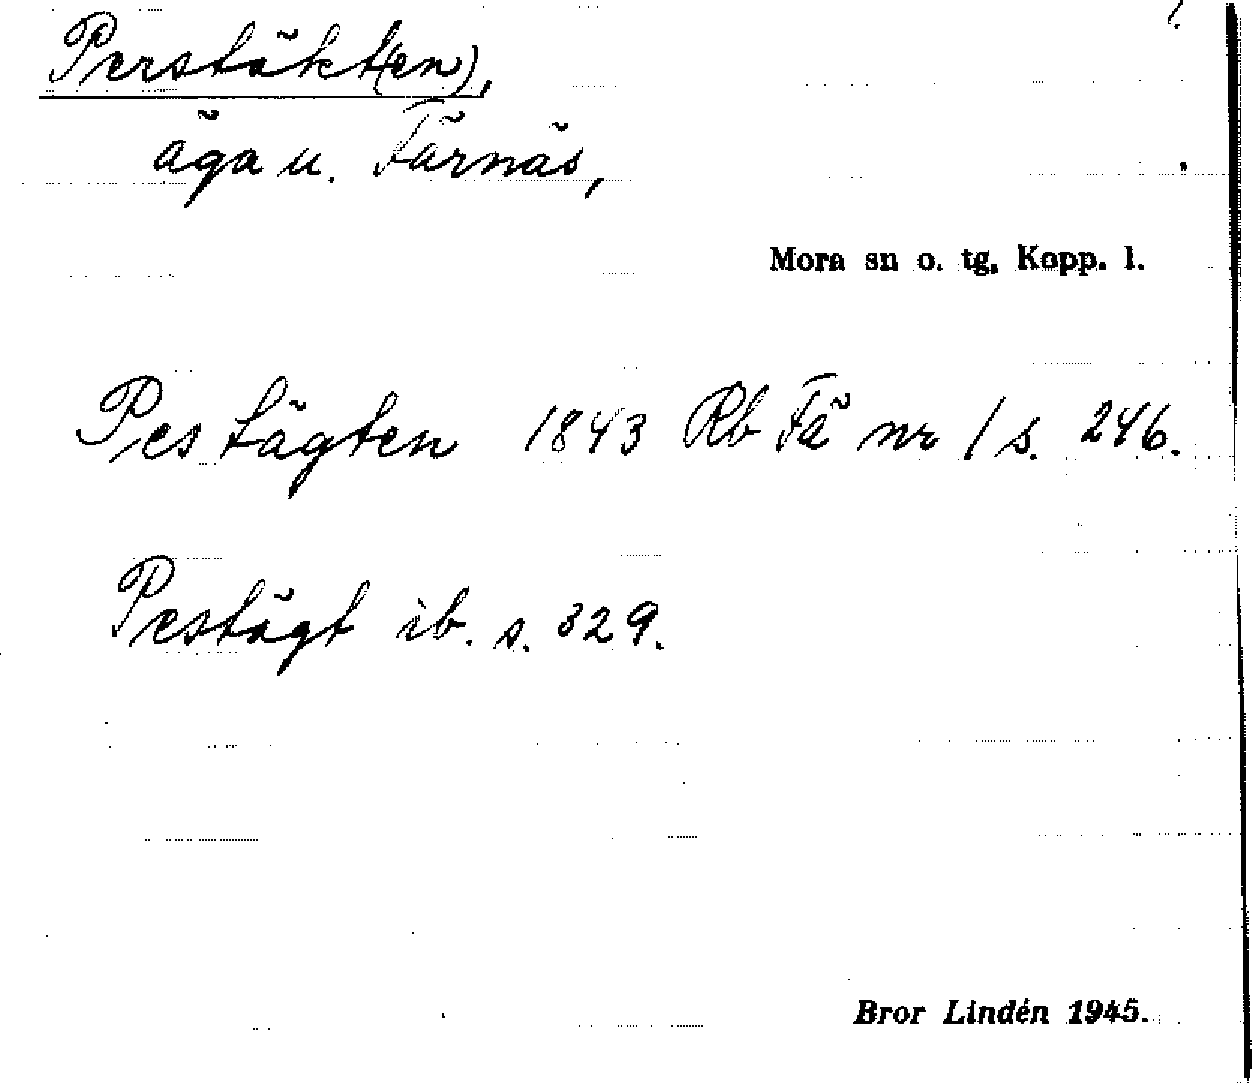 Perstäkt(en),
äga u. Färnäs,
Mora sn o. tg. Kopp. l.
Pestägten 1843 Rb Fä nr 1 s. 246.
Pestägt ib. s. 329.
Bror Lindén 1945.